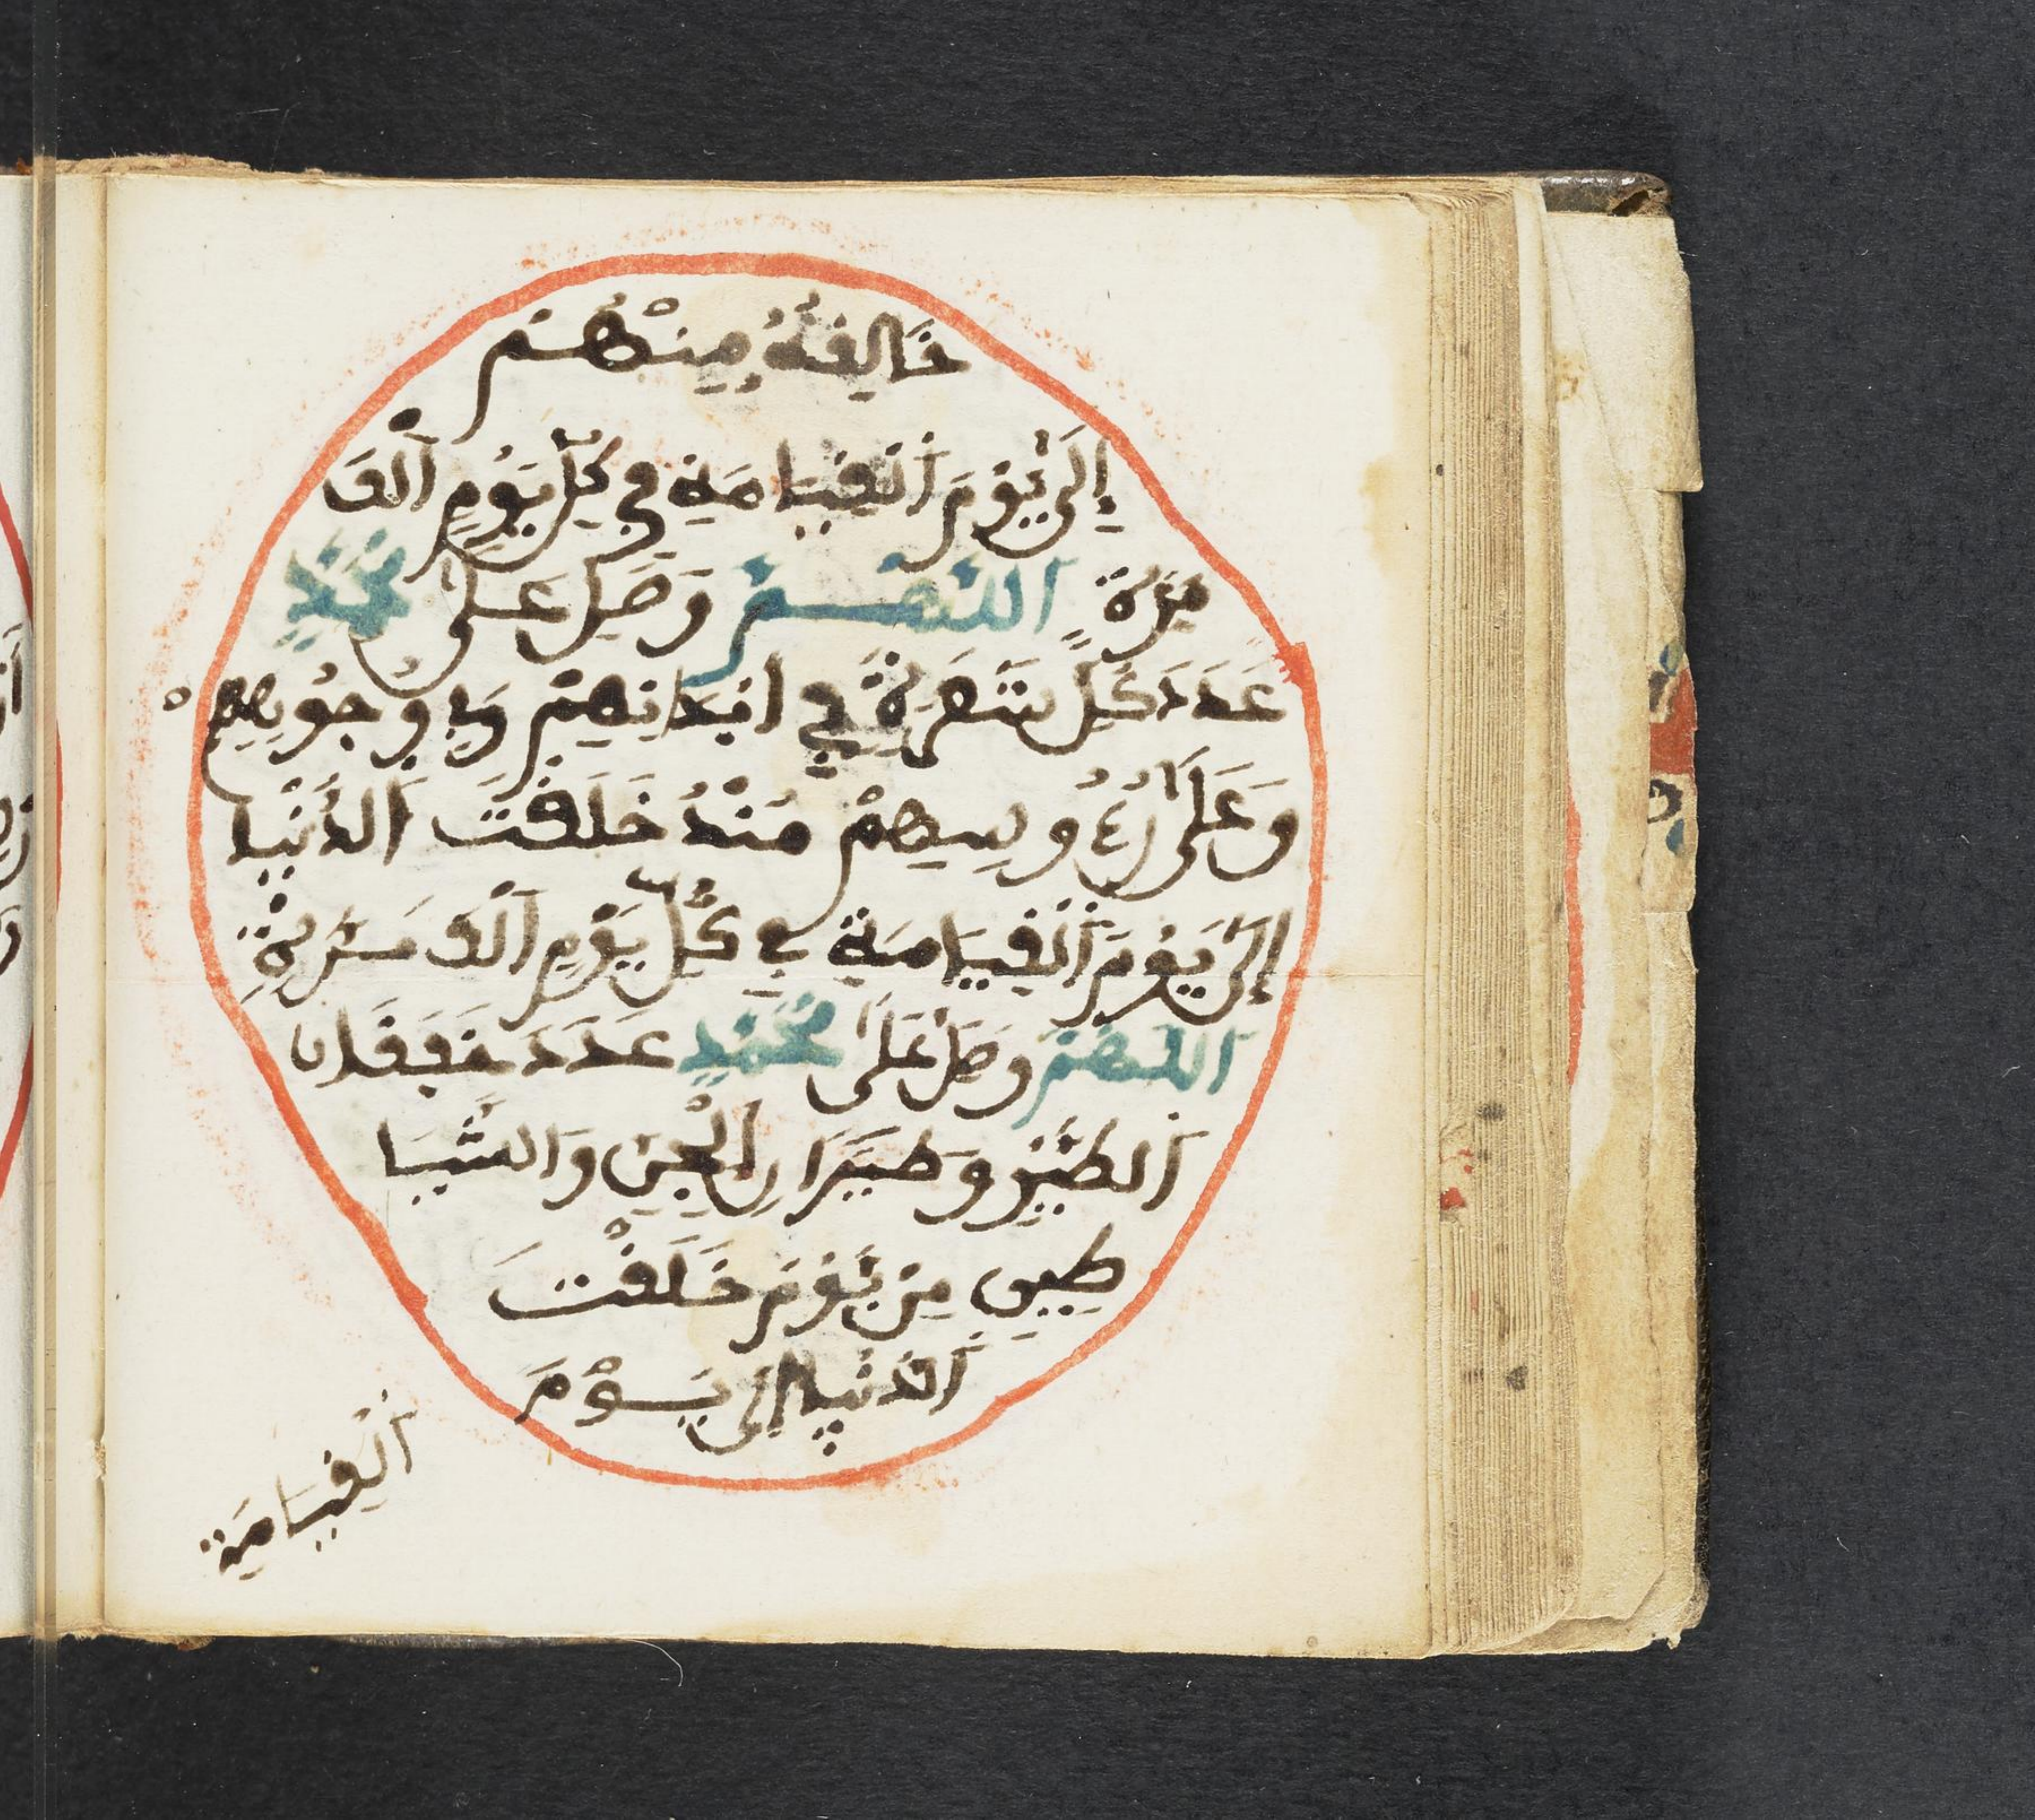 خَالِفَهُ مِنْهُمْ
إِلَى يَوْمَ الْقِيَامَةِ فِي كُلِّ يَوْمٍ أَلْفَ
مَرَّةٍ اللَّهُمَّ وَصَلِّ عَلَى مُحَمَّدٍ
عَدَدَ كُلِّ شَعَرَةٍ فِي أَبْدَانِهِمْ وَفِي وُجُوهِهِمْ
وَعَلَى رُءُوسِهِمْ مُنْذُ خَلَقْتَ الدُّنْيَا
إِلَى يَوْمَ الْقِيَامَةِ فِي كُلِّ يَوْمٍ أَلْفَ مَرَّةٍ
اللَّهُمَّ وَصَلِّ عَلَى مُحَمَّدٍ عَدَدَ خَفَقَانِ
الطَّيْرِ وَطَيَرَانِ الْجِنِّ وَالشَّيَا
طِينِ مِنْ يَوْمَ خَلَقْتَ
الدُّنْيَا إِلَى يَوْمَ
الْقِيَامَةِ